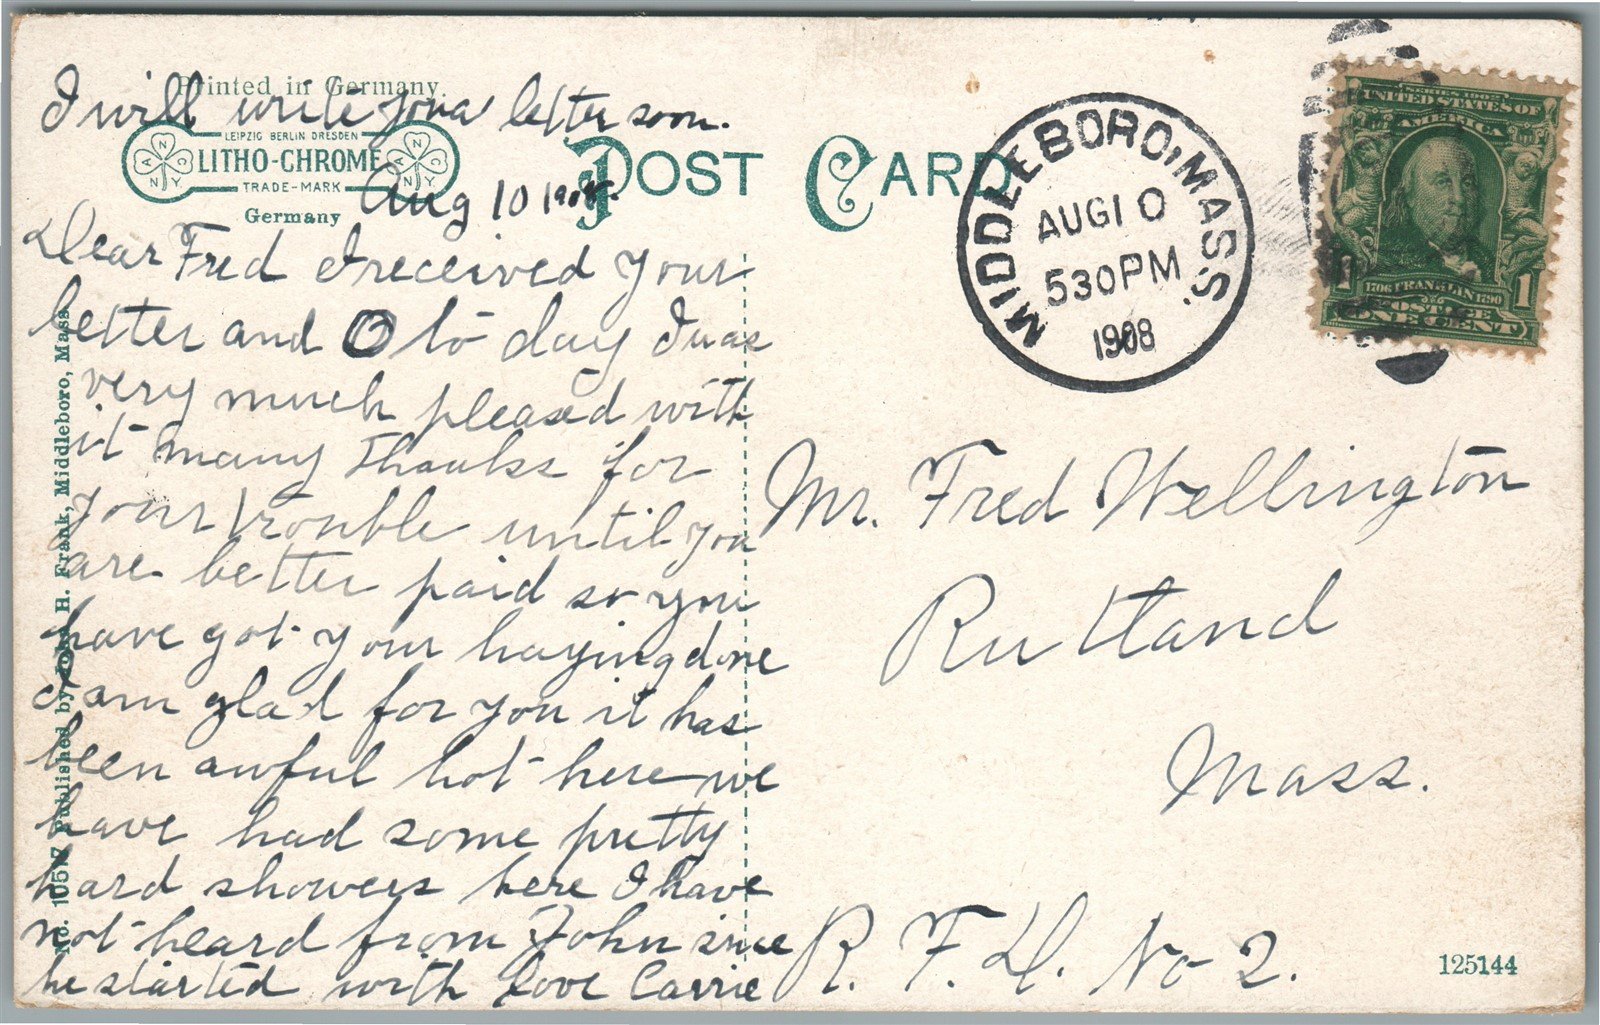 Printed in Germany.
I will write you a letter soon.
LEIPZIG BERLIN DRESDEN
LITHO-CHROME
TRADE-MARK
Germany
A N C N.Y.
A N C N.Y.
POST CARD
Aug 10 1908.
Dear Fred I received your
letter and O to day I was
very much pleased with
it many thanks for
your trouble until you
are better paid so you
have got your haying done
I am glad for you it has
been awful hot here we
have had some pretty
hard showers here I have
not heard from John since
he started with love Carrie
No. 10517 Published by John H. Frank, Middleboro, Mass.
MIDDLEBORO, MASS.
AUG 10
530 PM
1908
SERIES 1902
UNITED STATES OF
AMERICA
1706 FRANKLIN 1790
1 POSTAGE 1
ONE CENT
Mr. Fred Wellington
Rutland
Mass.
R. F. D. No 2.
125144